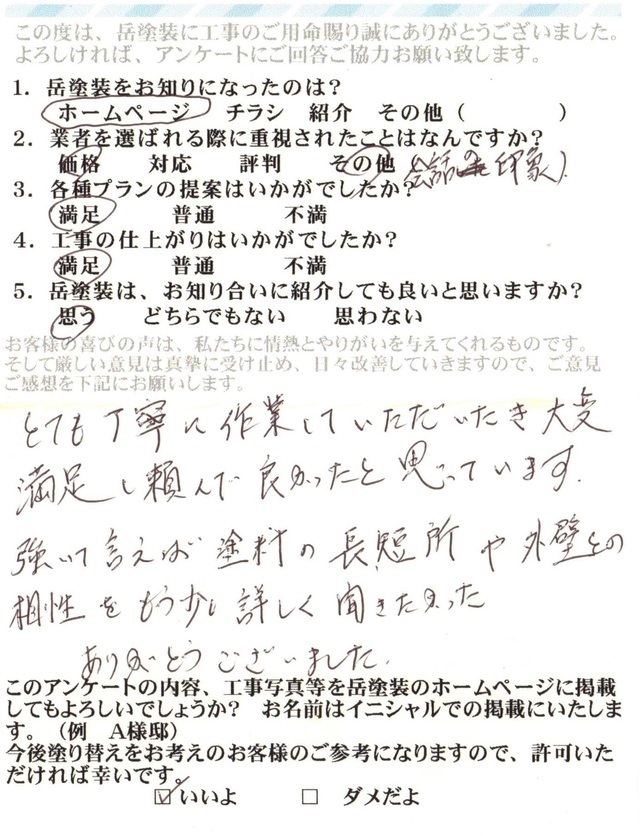 この度は、岳塗装に工事のご用命賜り誠にありがとうございました。
よろしければ、アンケートにご回答ご協力お願い致します。
1. 岳塗装をお知りになったのは?
ホームページ チラシ 紹介 その他 ( )
2. 業者を選ばれる際に重視されたことはなんですか?
価格 対応 評判 その他 会話の印象)
3. 各種プランの提案はいかがでしたか?
満足 普通 不満
4. 工事の仕上がりはいかがでしたか?
満足 普通 不満
5. 岳塗装は、お知り合いに紹介しても良いと思いますか?
思う どちらでもない 思わない
お客様の喜びの声は、私たちに情熱とやりがいを与えてくれるものです。
そして厳しい意見は真摯に受け止め、日々改善していきますので、ご意見
ご感想を下記にお願いします。
とても丁寧に作業していただいたき大変
満足し頼んで良かったと思っています.
強いて言えば塗料の長短所や外壁との
相性をもう少し詳しく聞きたかった
ありがとうございました.
このアンケートの内容、工事写真等を岳塗装のホームページに掲載
してもよろしいでしょうか? お名前はイニシャルでの掲載にいたしま
す。(例 A様邸)
今後塗り替えをお考えのお客様のご参考になりますので、許可いた
だければ幸いです。
☑ いいよ □ ダメだよ